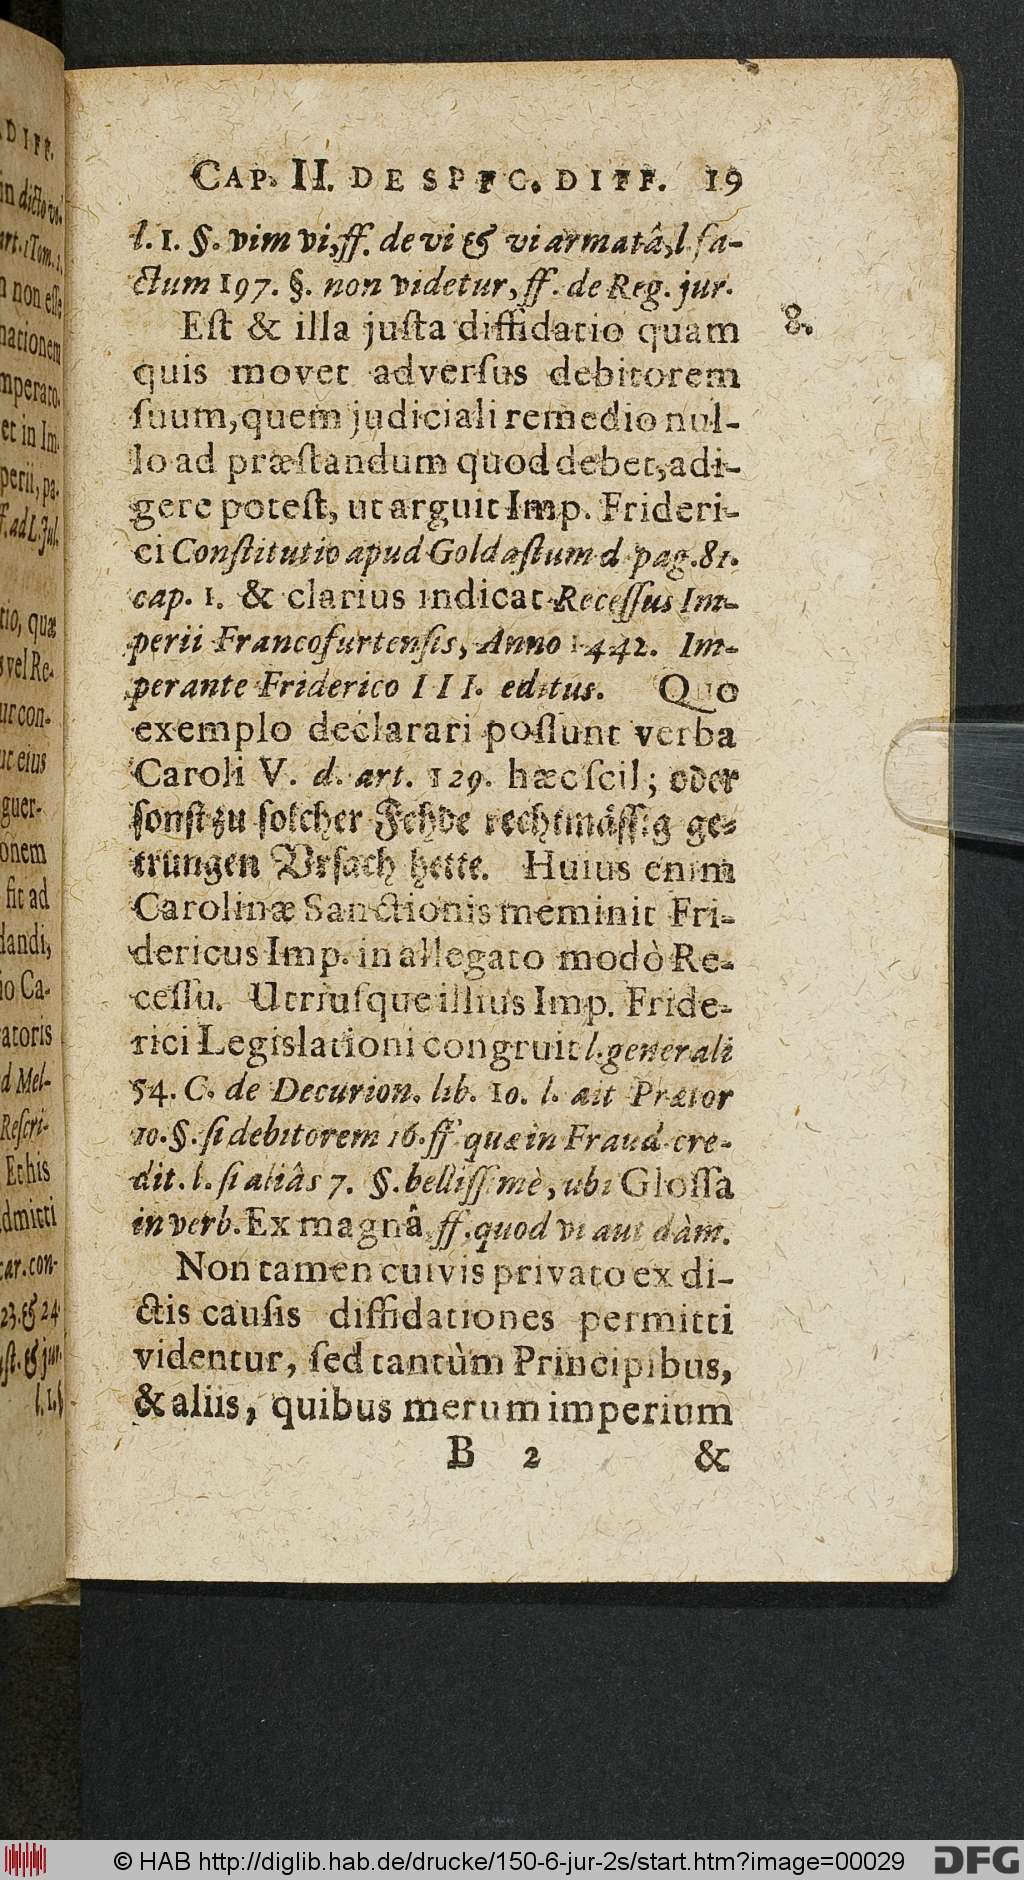 CAP. II. DE SPEC. DIFF. 19
l. 1. §. vim vi, ff. de vi & vi armatâ, l. fa-
ctum 197. §. non videtur, ff. de Reg. jur.
Est & illa justa diffidatio quam
8.
quis movet adversus debitorem
suum, quem judiciali remedio nul-
lo ad præstandum quod debet, adi-
gere potest, ut arguit Imp. Frideri-
ci Constitutio apud Goldastum d. pag. 81.
cap. 1. & clarius indicat Recessus Im-
perii Francofurtensis, Anno 1442. Im-
perante Friderico III. editus. Quo
exemplo declarari possunt verba
Caroli V. d. art. 129. hæc scil; oder
sonst zu solcher Fehde rechtmässig ge-
trungen Vrsach hette. Huius enim
Carolinæ Sanctionis meminit Fri-
dericus Imp. in allegato modò Re-
cessu. Utriusque illius Imp. Fride-
rici Legislationi congruit l. generali
54. C. de Decurion. lib. 10. l. ait Prætor
10. §. si debitorem 16. ff quæ in Fraud. cre-
dit. l. si aliâs 7. §. bellissimè, ubi Glossa
in verb. Ex magnâ, ff. quod vi aut dàm.
Non tamen cuivis privato ex di-
ctis causis diffidationes permitti
videntur, sed tantùm Principibus,
& aliis, quibus merum imperium
B 2 &
© HAB http://diglib.hab.de/drucke/150-6-jur-2s/start.htm?image=00029 DFG